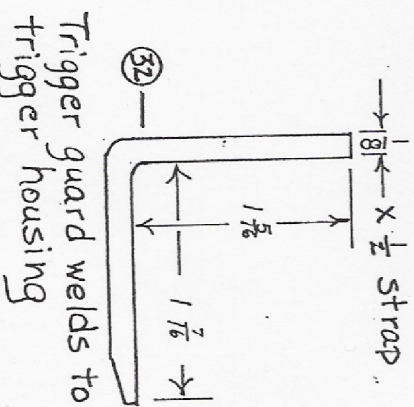 1/8 x 1/2 strap
1 5/16
1 7/16
32
Trigger guard welds to
trigger housing